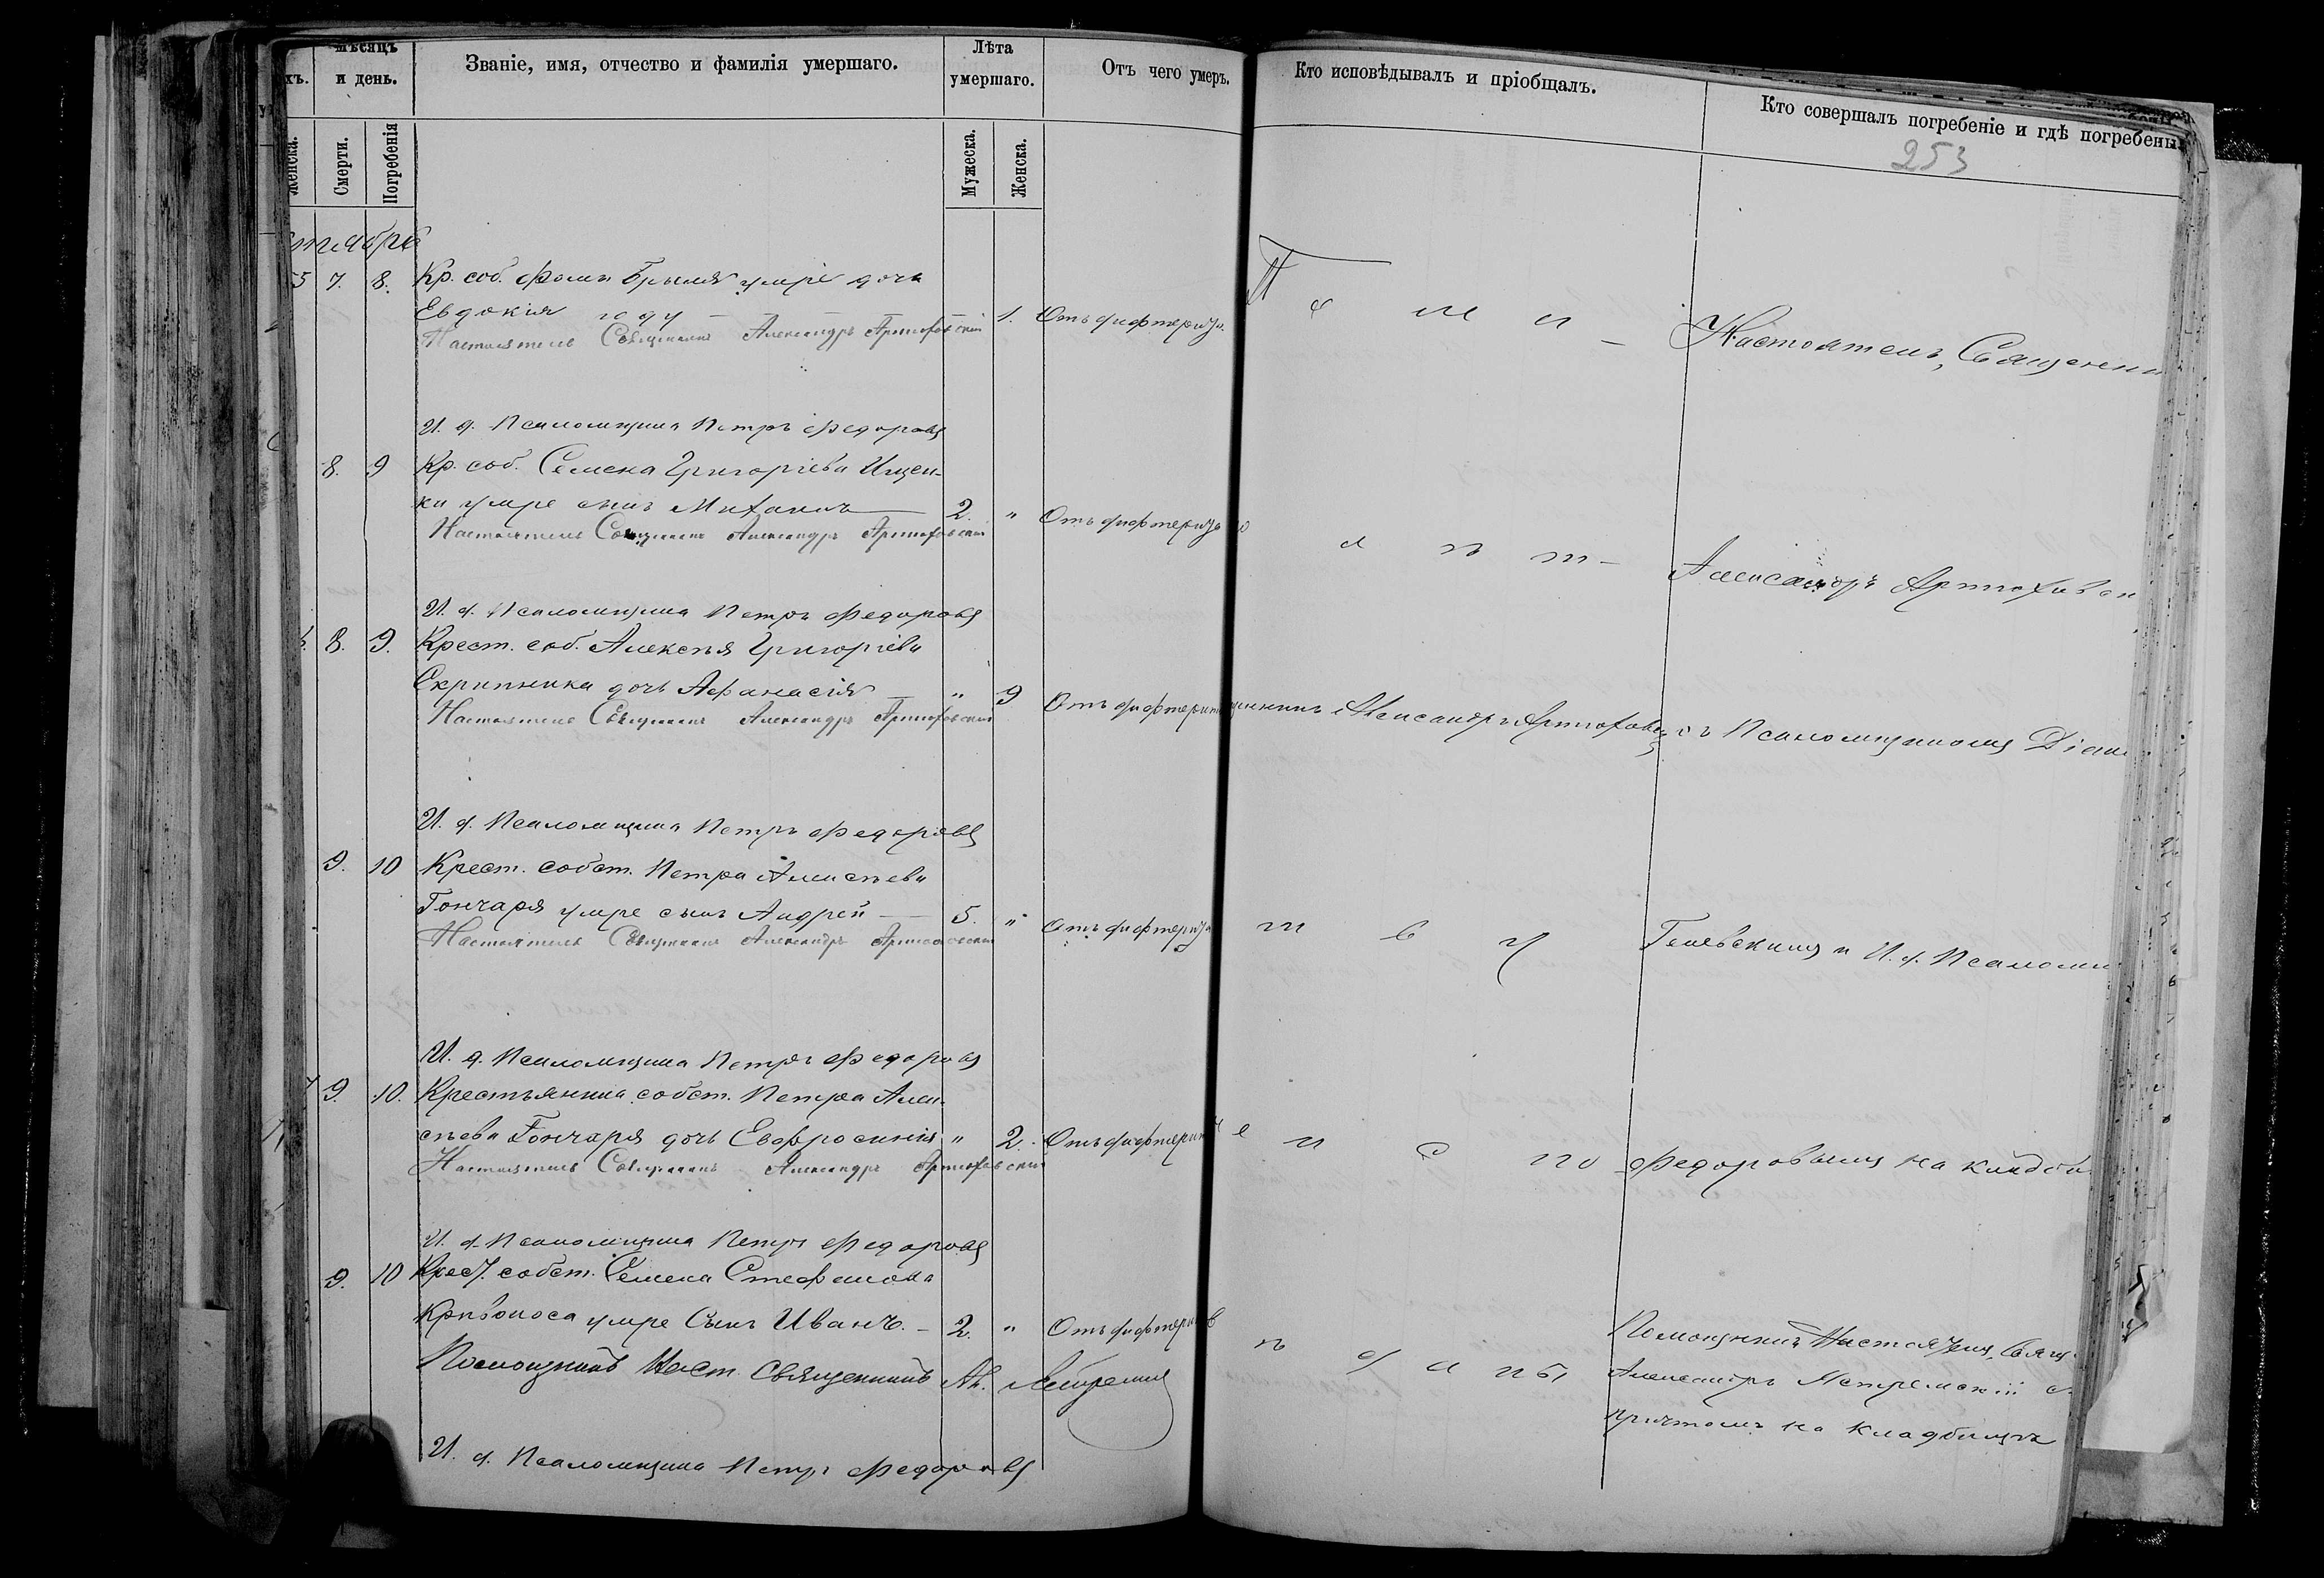 мѣсяцъ
и день.
Званіе, имя, отчество и фамилія умершаго.
Лѣта
умершаго.
Отъ чего умеръ.
Кто исповѣдывалъ и пріобщалъ.
Кто совершалъ погребеніе и гдѣ погребены.
253
Женска.
Смерти.
Погребенія
Мужеска.
Женска.
7. 8. Кр. соб. Фомы умре дочь
Евдокія году 1. Отъ дифтерита.
Настоятель Священникъ Александръ Артюховскій
И. д. Псаломщика Петръ Федоровъ
8. 9 Кр. соб. Семена Григоріева Ищен-
ки умре сынъ Михаилъ 2. " Отъ дифтерита
Настоятель Священникъ Александръ Артюховскій
И. д. Псаломщика Петръ Федоровъ
8. 9. Крест. соб. Алексѣя Григоріева
Скрипника дочь Афанасія " 9 Отъ дифтерита
Настоятель Священникъ Александръ Артюховскій
И. д. Псаломщика Петръ Федоровъ
9. 10 Крест. собст. Петра Алексѣева
Гончаря умре сынъ Андрей 5. " Отъ дифтерита
Настоятель Священникъ Александръ Артюховскій
И. д. Псаломщика Петръ Федоровъ
9. 10. Крестьянина собст. Петра Алек-
сѣева Гончаря дочь Евфросинія " 2. Отъ дифтерита
Настоятель Священникъ Александръ Артюховскій
И. д. Псаломщика Петръ Федоровъ
9. 10 Крест. собст. Семена Стефанова
Кривоноса умре Сынъ Иванъ. 2. " Отъ дифтерита
Помощникъ Наст. Священникъ Ал.
И. д. Псаломщика Петръ Федоровъ
Настоятель, Священни
Александръ Артюховск
Александръ Артюховск съ Псаломщикомъ
и И. д. Псаломщ
Федоровымъ на кладби
Помощникъ Настоятеля, Свящ.
Александръ
причтомъ на кладбищѣ